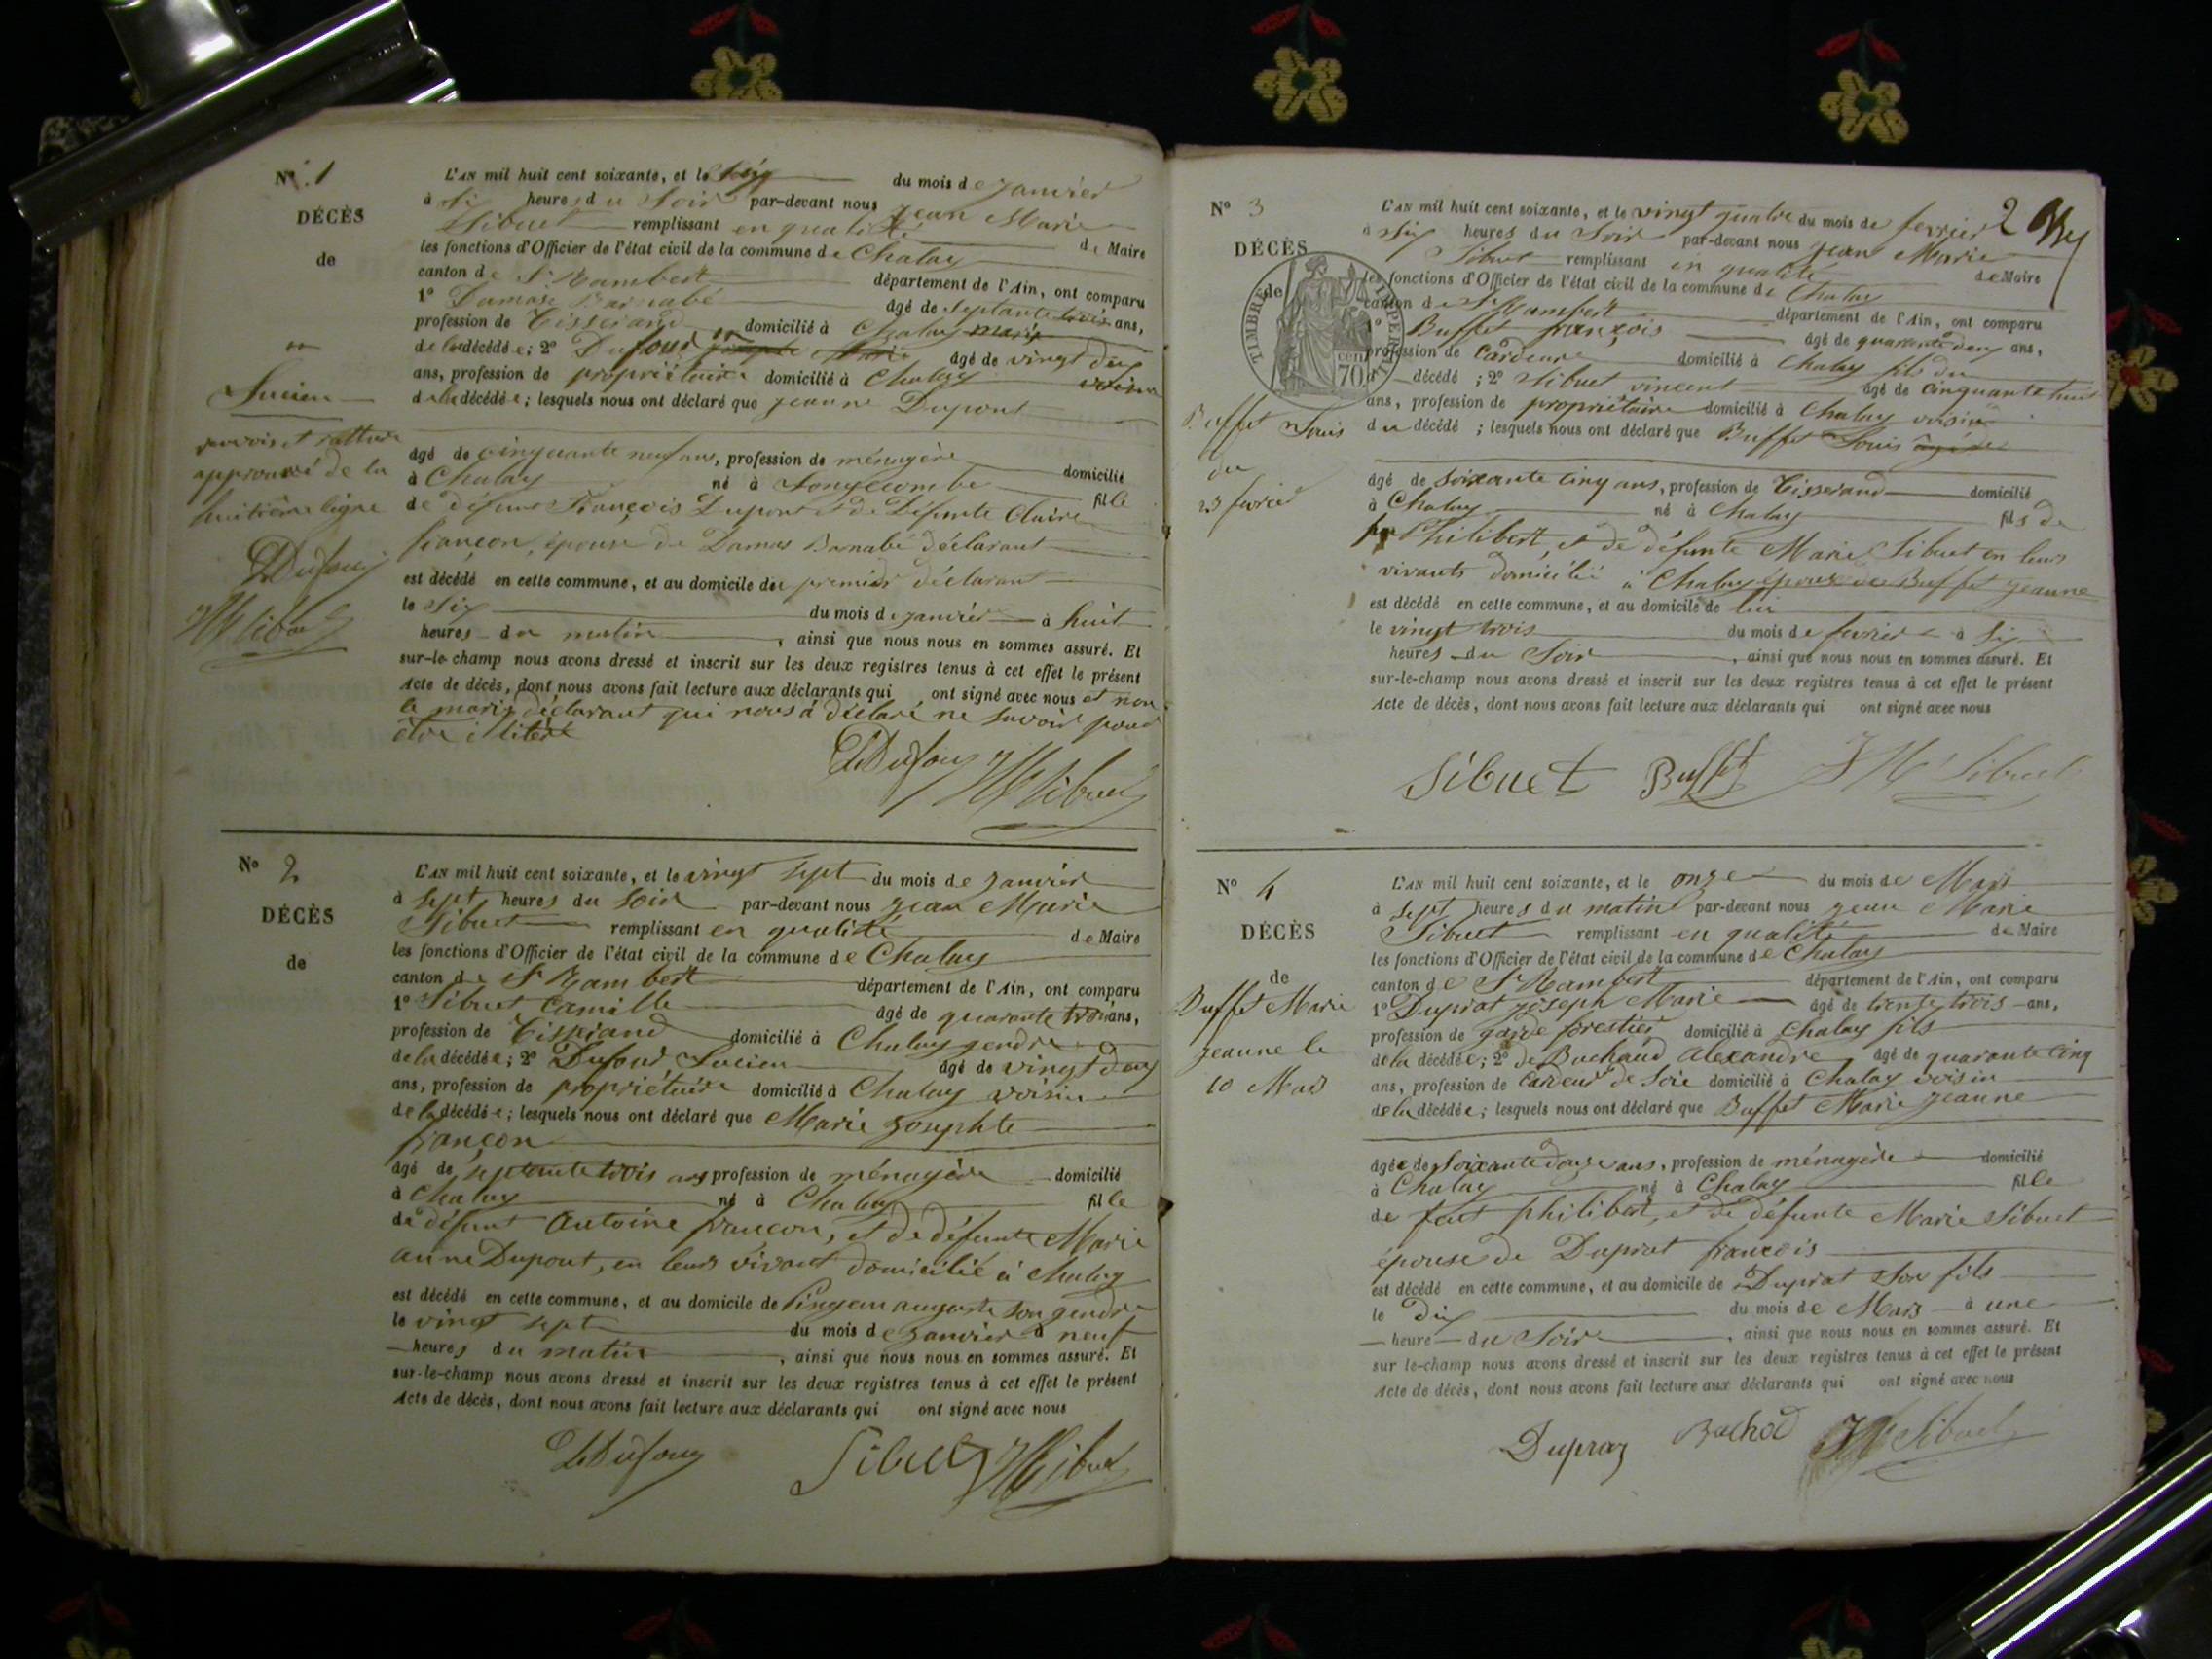 N° 1
DÉCÈS
de
Lucien
renvoi et rature
approuvé de la
huitième ligne
LDufour
JMSibuet
L'AN mil huit cent soixante, et le six du mois de janvier
à six heures du soir par-devant nous jean Marie
Sibuet remplissant en qualité de Maire
les fonctions d'Officier de l'état civil de la commune de Chaley
canton de St Rambert département de l'Ain, ont comparu
1° Damase Barnabé âgé de septante trois ans,
profession de Tisserand domicilié à Chaley mari
de la décédée; 2° Dufour âgé de vingt deux
ans, profession de propriétaire domicilié à Chaley voisin
de la décédée; lesquels nous ont déclaré que jeanne Dupont
âgé de cinquante neuf ans, profession de ménagère domicilié
à Chaley né à Longecombe fille
de défunt François Dupont et de Défunte Claire
françon, épouse de Damas Barnabé déclarant
est décédé en cette commune, et au domicile du premier déclarant
le six du mois de janvier à huit
heures du matin, ainsi que nous nous en sommes assuré. Et
sur-le-champ nous avons dressé et inscrit sur les deux registres tenus à cet effet le présent
Acte de décès, dont nous avons fait lecture aux déclarants qui ont signé avec nous et non
le mari déclarant qui nous a déclaré ne savoir pour
être illitéré
LDufour JMSibuet
N° 2
DÉCÈS
de
L'AN mil huit cent soixante, et le vingt sept du mois de janvier
à sept heures du soir par-devant nous jean Marie
Sibuet remplissant en qualité de Maire
les fonctions d'Officier de l'état civil de la commune de Chaley
canton de St Rambert département de l'Ain, ont comparu
1° Sibuet Camille âgé de quarante trois ans,
profession de Tisserand domicilié à Chaley gendre
de la décédée; 2° Dufour Lucien âgé de vingt deux
ans, profession de propriétaire domicilié à Chaley voisin
de la décédée; lesquels nous ont déclaré que Marie josephte
françon
âgé de septante trois ans profession de ménagère domicilié
à Chaley né à Chaley fille
de défunt Antoine françon, et de défunte Marie
anne Dupont, en leurs vivant domicilié à Chaley
est décédé en cette commune, et au domicile de auguste son gendre
le vingt sept du mois de janvier à neuf
heures du matin, ainsi que nous nous en sommes assuré. Et
sur-le-champ nous avons dressé et inscrit sur les deux registres tenus à cet effet le présent
Acte de décès, dont nous avons fait lecture aux déclarants qui ont signé avec nous
LDufour Sibuet JMSibuet
2
N° 3
DÉCÈS
de
TIMBRE IMPERIAL
70
Buffet Louis
du
23 fevrier
L'AN mil huit cent soixante, et le vingt quatre du mois de fevrier
à six heures du soir par-devant nous jean Marie
Sibuet remplissant en qualité de Maire
les fonctions d'Officier de l'état civil de la commune de Chaley
canton de St Rambert département de l'Ain, ont comparu
1° Buffet françois âgé de quarante deux ans,
profession de Cardeur domicilié à Chaley fils du
décédé ; 2° Sibuet vincent âgé de cinquante huit
ans, profession de propriétaire domicilié à Chaley voisin
du décédé ; lesquels nous ont déclaré que Buffet Louis
âgé de soixante cinq ans, profession de Tisserand domicilié
à Chaley né à Chaley fils de
Philibert, et de défunte Marie Sibuet en leurs
vivants domicilié à Chaley époux de Buffet jeanne
est décédé en cette commune, et au domicile de lui
le vingt trois du mois de fevrier à six
heures du soir, ainsi que nous nous en sommes assuré. Et
sur-le-champ nous avons dressé et inscrit sur les deux registres tenus à cet effet le présent
Acte de décès, dont nous avons fait lecture aux déclarants qui ont signé avec nous
Sibuet Buffet JM Sibuet
N° 4
DÉCÈS
de
Buffet Marie
jeanne le
10 Mars
L'AN mil huit cent soixante, et le onze du mois de Mars
à sept heures du matin par-devant nous jean Marie
Sibuet remplissant en qualité de Maire
les fonctions d'Officier de l'état civil de la commune de Chaley
canton de St Rambert département de l'Ain, ont comparu
1° Duprat joseph Marie âgé de trente trois ans,
profession de garde forestier domicilié à Chaley fils
de la décédée; 2° de Buchaud Alexandre âgé de quarante cinq
ans, profession de Cardeur de soie domicilié à Chaley voisin
de la décédée; lesquels nous ont déclaré que Buffet Marie jeanne
âgée de soixante douze ans, profession de ménagère domicilié
à Chaley né à Chaley fille
de feut philibert, et de défunte Marie Sibuet
épouse de Duprat françois
est décédé en cette commune, et au domicile de Duprat son fils
le dix du mois de Mars à une
heure du Soir, ainsi que nous nous en sommes assuré. Et
sur le-champ nous avons dressé et inscrit sur les deux registres tenus à cet effet le présent
Acte de décès, dont nous avons fait lecture aux déclarants qui ont signé avec nous
Dupraz Bachod JM Sibuet